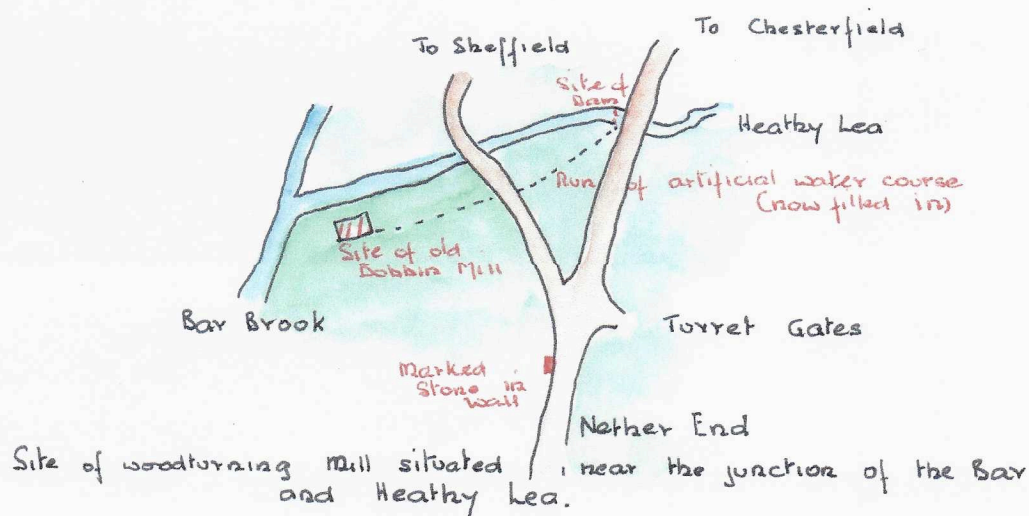 To Chesterfield
To Sheffield
Site of
Dam
Heathy Lea
Run of artificial water course
(now filled in)
Site of old
Bobbin Mill
Bar Brook
Turret Gates
Marked
Stone in
Wall
Nether End
Site of woodturning mill situated near the junction of the Bar
and Heathy Lea.